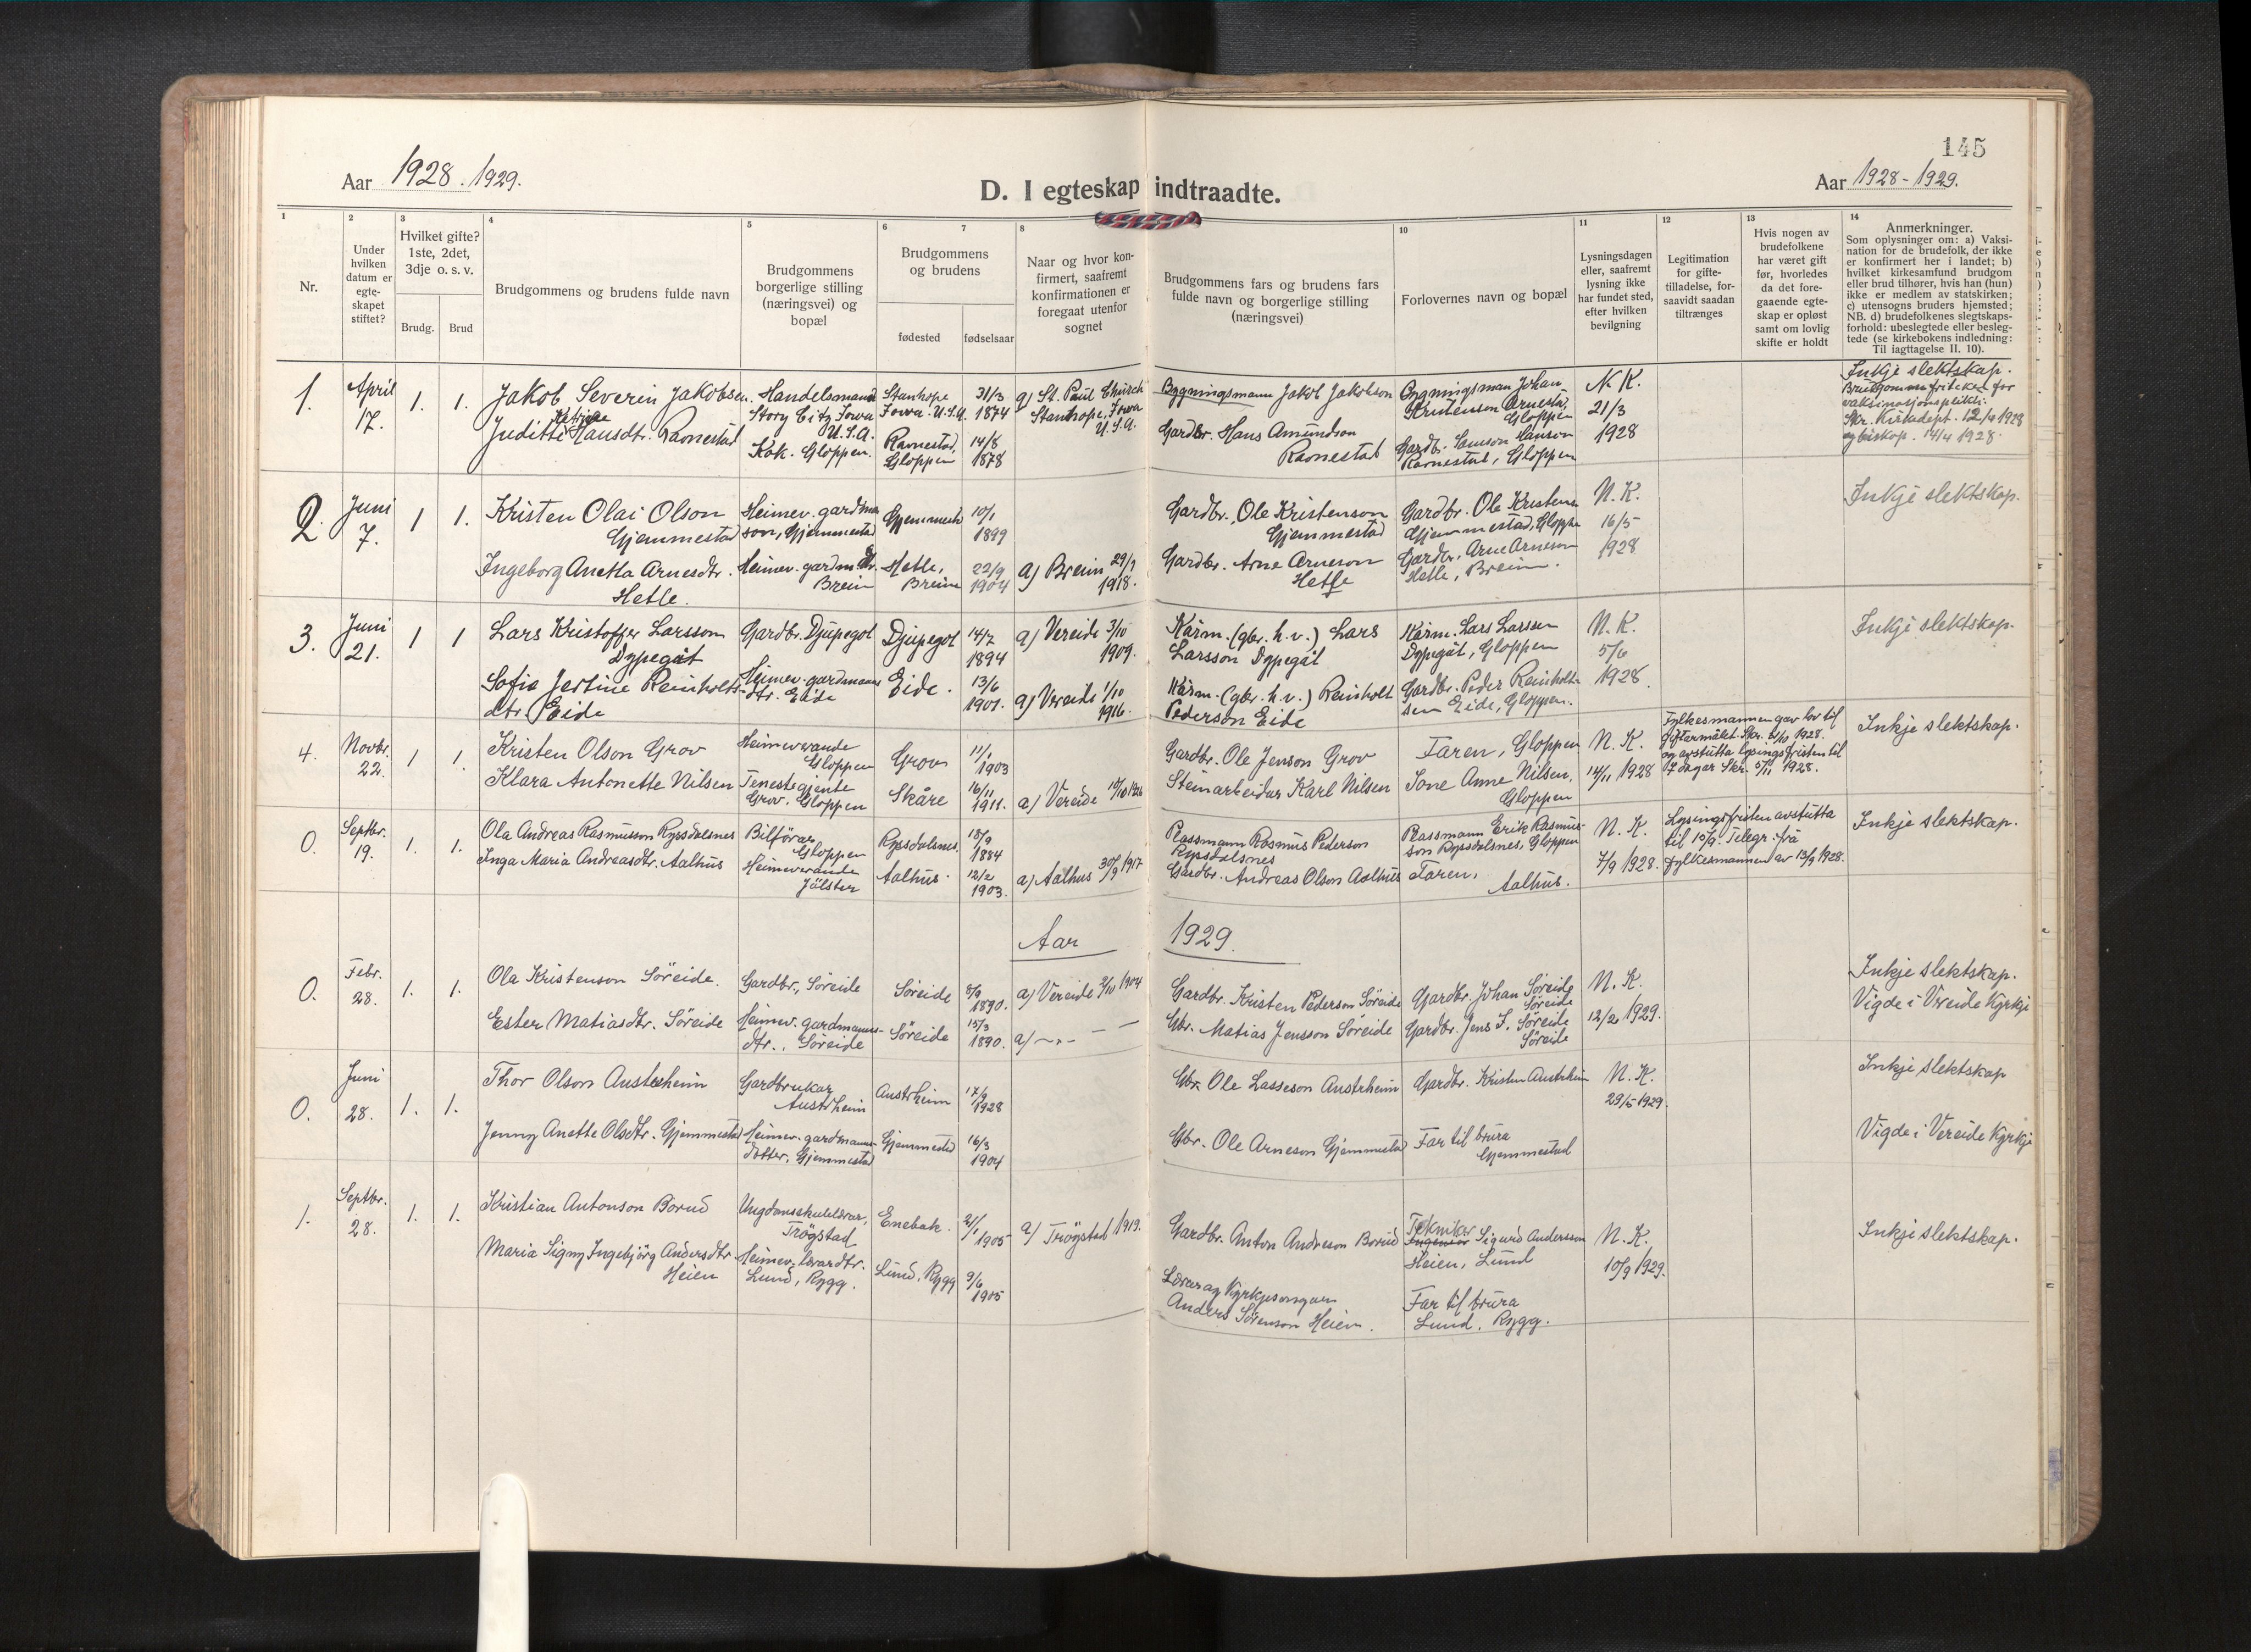 145
Aar 1928. 1929.
D. I egteskap indtraadte.
Aar 1928-1929.
1 2 3 4 5 6 7 8 10 11 12 13 14
Nr.
Under hvilken datum er egte-skapet stiftet?
Hvilket gifte?
1ste, 2det,
3dje o. s. v.
Brudg. Brud
Brudgommens og brudens fulde navn
Brudgommens
borgerlige stilling
(næringsvei) og
bopæl
Brudgommens
og brudens
fødested fødselsaar
Naar og hvor kon-
firmert, saafremt
konfirmationen er
foregaat utenfor
sognet
Brudgommens fars og brudens fars
fulde navn og borgerlige stilling
(næringsvei)
Forlovernes navn og bopæl
Lysningsdagen
eller, saafremt
lysning ikke
har fundet sted,
efter hvilken
bevilgning
Legitimation
for gifte-
tilladelse, for-
saavidt saadan
tiltrænges
Hvis nogen av
brudefolkene
har været gift
før, hvorledes
da det fore-
gaaende egte-
skap er opløst
samt om lovlig
skifte er holdt
Anmerkninger.
Som oplysninger om: a) Vaksi-
nation for de brudefolk, der ikke
er konfirmert her i landet; b)
hvilket kirkesamfund brudgom
eller brud tilhører, hvis han (hun)
ikke er medlem av statskirken;
c) utensogns bruders hjemsted;
NB. d) brudefolkenes slegtskaps-
forhold: ubeslegtede eller besleg-
tede (se kirkebokens indledning:
Til iagttagelse II. 10).
1.
April
17.
1. 1.
Jakob Severin Jakobsen.
Juditte Hansdtr. Ravnestad
Handelsmand
Story City Iowa
U.S.A.
Kok. Gloppen.
Stanhope
Iowa. U.S.A.
Ravnestad,
Gloppen
31/3
1874
14/8
1878
a) St. Paul Church
Stanhope, Iowa
U.S.A.
Bygningsmann Jakob Jakobson
Gardbr. Hans Amundson
Ravnestad
Bygningsman Johan
Kristenson
Gloppen
Gardbr. Samson Hanson
Ravnestad, Gloppen
N K.
21/3
1928
Inkje slektskap.
Brudgommen friteken for
vaksinasjonsplikti.
Skr. Kirkedept. 12/4 1928
og biskop. 14/4 1928.
2.
Juni
7.
1 1.
Kristen Olai Olson
Gjemmestad
Ingeborg Anetta Arnesdtr.
Hetle.
Heimev. gardman
son, Gjemmestad
Heimev. gardm dtr.
Breim
Gjemmestad
Hetle,
Breim
10/1
1899
22/9
1904
a) Breim 29/9
1918.
Gardbr. Ole Kristenson
Gjemmestad
Gardbr. Arne Arneson
Hetle
Gardbr. Ole Kristens
Gjemmestad, Gloppen
Gardbr. Arne Arneson
Hetle, Breim.
N.K.
16/5
1928
Inkje slektskap.
3.
Juni
21.
1 1
Lars Kristoffer Larsson
Dypegåt
Sofie Jertine Reinholts-
dtr. Eide
Gardbr. Djupegot
Heimev. gardmanns
dtr. Eide
Djupegot
Eide.
14/2
1894
13/6
1901.
a) Vereide 3/10
1909.
a) Vereide 1/10
1916.
Kårm. (gbr. h.v.) Lars
Larsson Dypegåt
Kårm. (gbr. h.v.) Reinholt
Pederson Eide
Kårm. Lars Larssen
Dypegåt, Gloppen
Gardbr. Peder Reinholt-
sen Eide, Gloppen.
N.K.
5/6
1928.
Inkje slektskap.
4.
Novbr.
22.
1 1.
Kristen Olson Grov
Klara Antonette Nilsen
Heimeverande
Gloppen
Tenestegjente
Grov. Gloppen
Grov
Skåre
11/1
1903
16/11
1911.
a) Vereide
Gardbr. Ole Jenson Grov
Steinarbeidar Karl Nilsen
Faren, Gloppen
Tone Anne Nilsen,
Gloppen
N. K.
14/11 1928
Fylkesmannen gav lov til
giftarmålet. Skr. 1928.
og avstutta lysingsfristen til
7 dagar Skr. 5/11 1928.
Inkje slektskap.
0.
Septbr.
19.
1. 1.
Ola Andreas Rasmusson Ryssdalsnes
Inga Maria Andreasdtr. Aalhus
Bilförar
Gloppen
Heimeverande
Jölster
Ryssdalsnes.
Aalhus.
18/9
1884
12/2
1903.
a) Aalhus 30/9 1917
Plassmann Rasmus Pederson
Ryssdalsnes
Gardbr. Andreas Olson Aalhus
Plassmann Erik Rasmus-
son Ryssdalsnes, Gloppen
Faren.
Aalhus.
N. K.
7/9 1928.
Lysingsfristen avstutta
til 10/9. Telegr. frå
fylkesmannen av 13/9 1928.
Inkje slektskap.
Aar 1929.
0.
Febr.
28.
1. 1.
Ola Kristenson Söreide.
Ester Matiasdtr. Söreide
Gardbr., Söreide
Heimev. gardmanns-
dtr., Söreide
Söreide
Söreide
8/9
1890.
15/3
1890.
a) Vereide 2/10 1904
a) -"- — —
Gardbr. Kristen Pederson Söreide
Gbr. Matias Jensson Söreide
Gardbr. Johan Söreide
Söreide
Gardbr. Jens J. Söreide
Söreide
N. K.
12/2 1929.
Inkje slektskap.
Vigde i Vereide kyrkje
0.
Juni
28.
1. 1.
Thor Olson Austerheim
Jenny Anette Olsdtr. Gjemmestad
Gardbrukar
Austrheim
Heimev. gardmanns-
dotter. Gjemmestad
Austrheim
Gjemmestad
17/9
1928
16/3
1904
Gbr. Ole Lasseson Austrheim
Gbr. Ole Arneson Gjemmestad
Gardbr. Kristen Austrheim
Far til brura
Gjemmestad
N. K.
29/5 1929.
Inkje slektskap
Vigde i Vereide kyrkje
1.
Septbr.
28.
1. 1.
Kristian Antonson Borud
Maria Signy Ingebjörg Andersdtr
Heien
Ungdomsskulelærar,
Trögstad
Heimev. lærardtr.
Lund, Rygg.
Enebak.
Lund, Rygg
21/1
1905
9/6
1905
a) Trögstad 1919.
Gardbr. Anton Andreson Borud
Lærar og kyrkjesongar
Anders Sörenson Heien.
Tekniker
Sigurd Andersson
Heien, Lund
Far til brura
Lund. Rygg.
N. K.
10/9 1929.
Inkje slektskap.